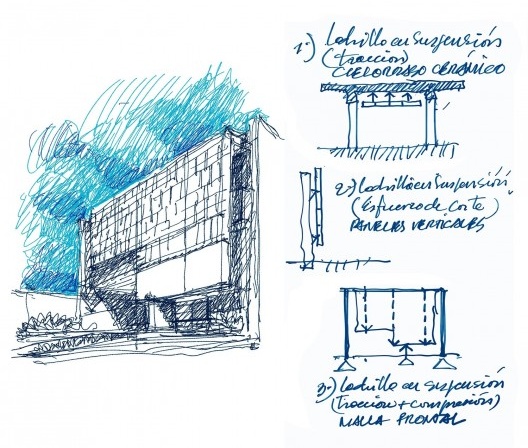 1.) Ladrillo en suspensión
(tracción)
CIELORRASO CERÁMICO
2.) Ladrillo en suspensión
(Esfuerzo de corte)
PANELES VERTICALES
3.) Ladrillo en suspensión
(tracción + compresión)
MALLA FRONTAL